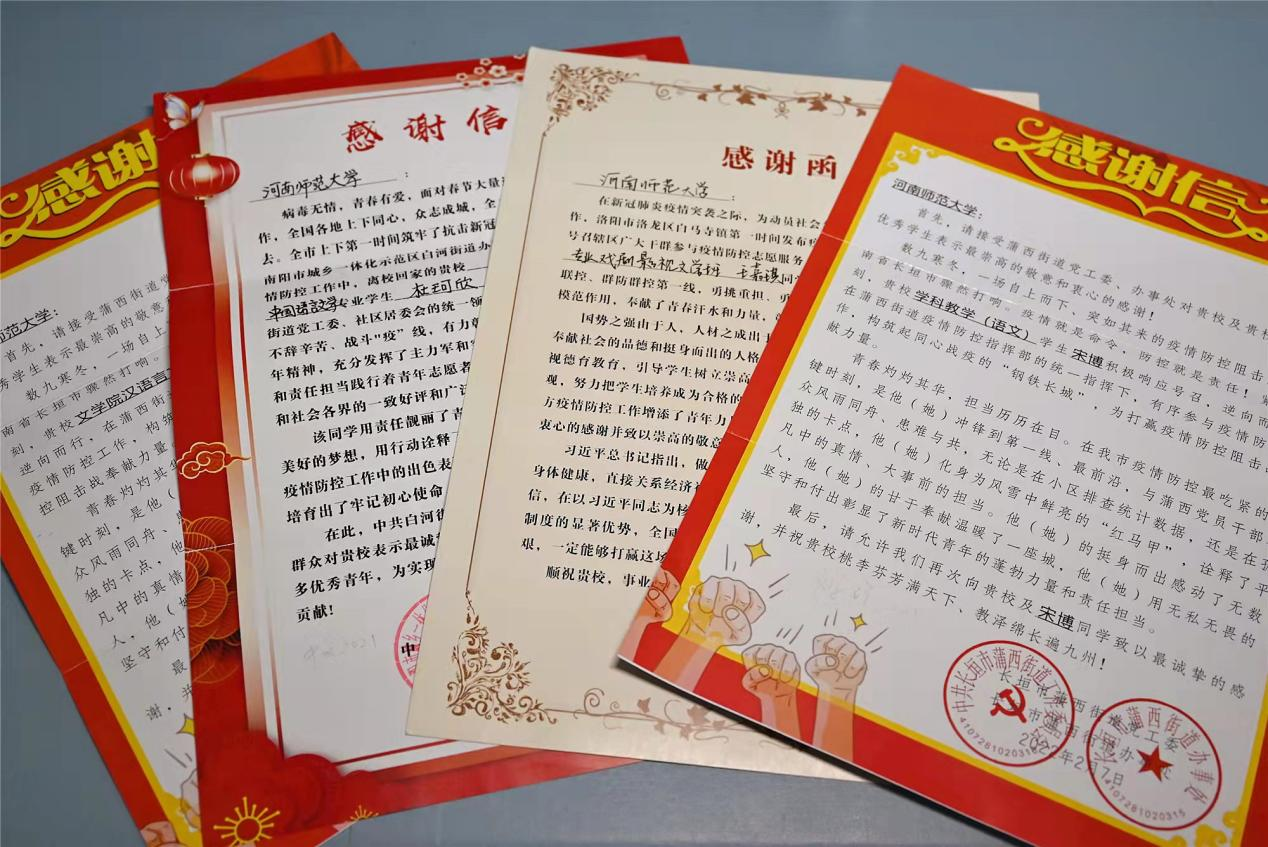 感谢
范大学:
首先,请接受蒲西街道党
秀学生表示最崇高的敬意
数九寒冬,一场自上
南省长垣市骤然打响。
刻,贵校文学院汉语言
逆向而行,在蒲西街
疫情防控工作,构筑
控阻击战奉献力量
青春灼灼其
键时刻,是他(
众风雨同舟、
独的卡点,他
凡中的真情
人,他(她
坚守和付
最
谢,并
感谢信
河南师范大学:
病毒无情,青春有爱,面对春节大量
作,全国各地上下同心,众志成城,全
去。全市上下第一时间筑牢了抗击新冠
南阳市城乡一体化示范区白河街道办
情防控工作中,离校回家的贵校
中国语言文学专业学生 杜珂欣
街道党工委、社区居委会的统一领
不辞辛苦、战斗“疫”线,有力
年精神,充分发挥了主力军和
和责任担当践行着青年志愿者
和社会各界的一致好评和广
该同学用责任靓丽了青
美好的梦想,用行动诠释
疫情防控工作中的出色表
培育出了牢记初心使命
在此,中共白河
群众对贵校表示最诚
多优秀青年,为实现
贡献!
中
感谢函
河南师范大学:
在新冠肺炎疫情突袭之际,为动员社会
作,洛阳市洛龙区白马寺镇第一时间发布
号召辖区广大干群参与疫情防控志愿服务
专业戏剧影视文学班 王嘉琪同
联控、群防群控第一线,勇挑重担、勇
模范作用,奉献了青春汗水和力量,
国势之强由于人,人材之成出于
奉献社会的品德和挺身而出的人格
视德育教育,引导学生树立崇高
现,努力把学生培养成为合格的
方疫情防控工作增添了青年力
衷心的感谢并致以崇高的敬意
习近平总书记指出,做
身体健康,直接关系经济
信,在以习近平同志为核
制度的显著优势,全国
艰,一定能够打赢这场
顺祝贵校,事业
感谢信
河南师范大学:
首先,请接受蒲西街道党工委、办事处对贵校及贵校
优秀学生表示最崇高的敬意和衷心的感谢!
数九寒冬,一场自上而下、突如其来的疫情防控阻击
南省长垣市骤然打响。疫情就是命令,防控就是责任!
刻,贵校学科教学(语文)学生宋博积极响应号召,逆向而
在蒲西街道疫情防控指挥部的统一指挥下,有序参与疫情防
作,构筑起同心战疫的“钢铁长城”,为打赢疫情防控阻击
献力量。
青春灼灼其华,担当历历在目。在我市疫情防控最吃紧的
键时刻,是他(她)冲锋到第一线、最前沿,与蒲西党员干部
众风雨同舟、患难与共,无论是在小区排查统计数据,还是在
独的卡点,他(她)化身为风雪中鲜亮的“红马甲”,诠释了平
凡中的真情、大事前的担当。他(她)的挺身而出感动了无数
人,他(她)的甘于奉献温暖了一座城,他(她)用无私无畏的
坚守和付出彰显了新时代青年的蓬勃力量和责任担当。
最后,请允许我们再次向贵校及宋博同学致以最诚挚的感
谢,并祝贵校桃李芬芳满天下、教泽绵长遍九州!
长垣市蒲西街道党工委
长垣市蒲西街道办事处
2022年2月7日
中共长垣市蒲西街道工委
蒲西街道办事处
4107281020315